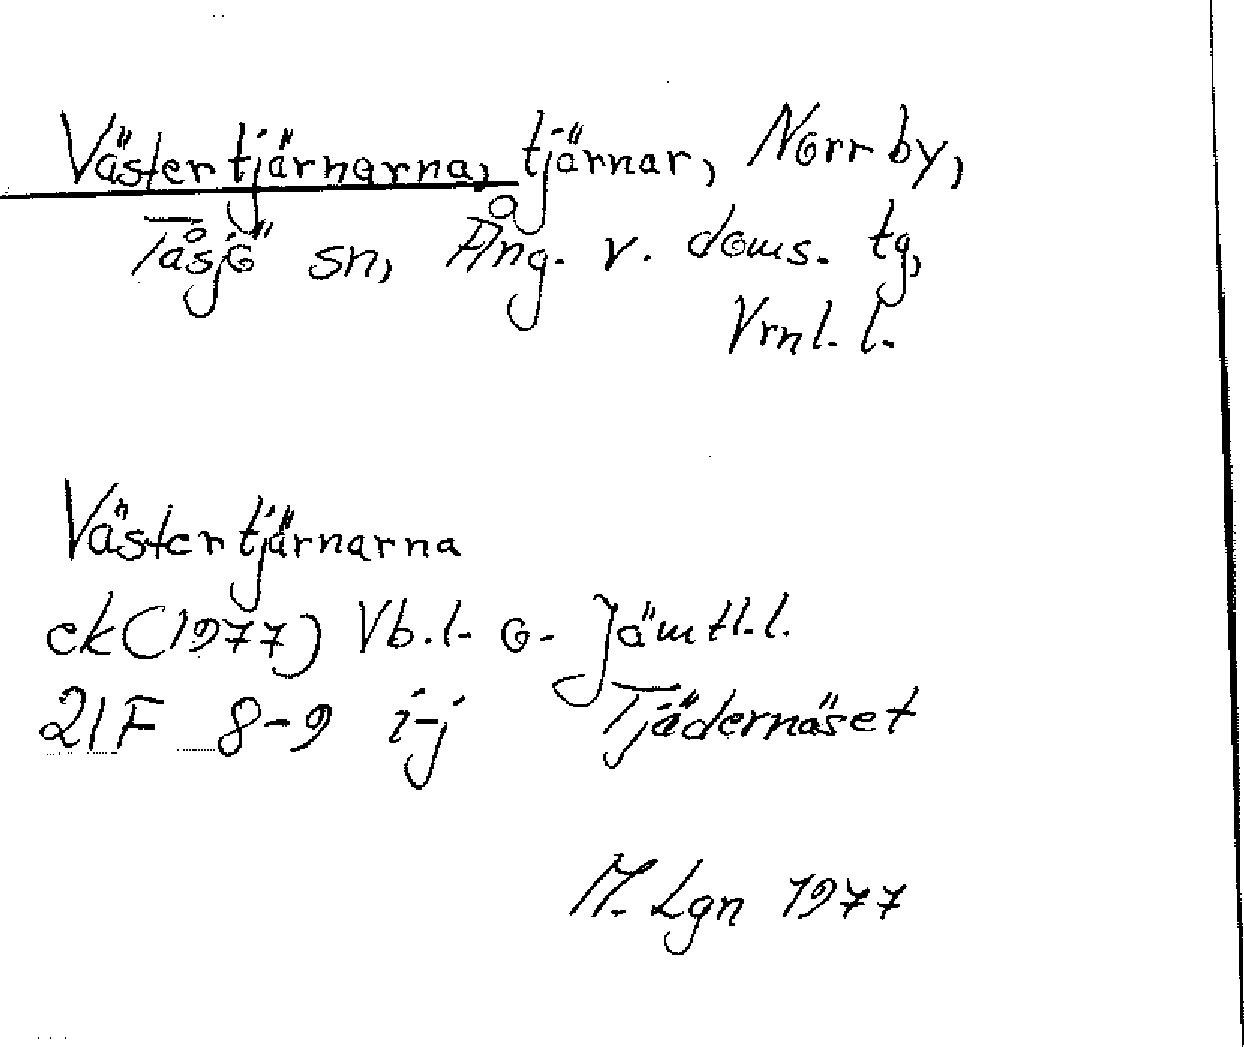 Västertjärnarna, tjärnar, Norrby,
Tåsjö sn, Ång. v. doms. tg,
Vrnl. l.
Västertjärnarna
ek (1977) Vb. l. o. Jämtl. l.
21F 8-9 i-j Tjädernäset
M. Lgn 1977